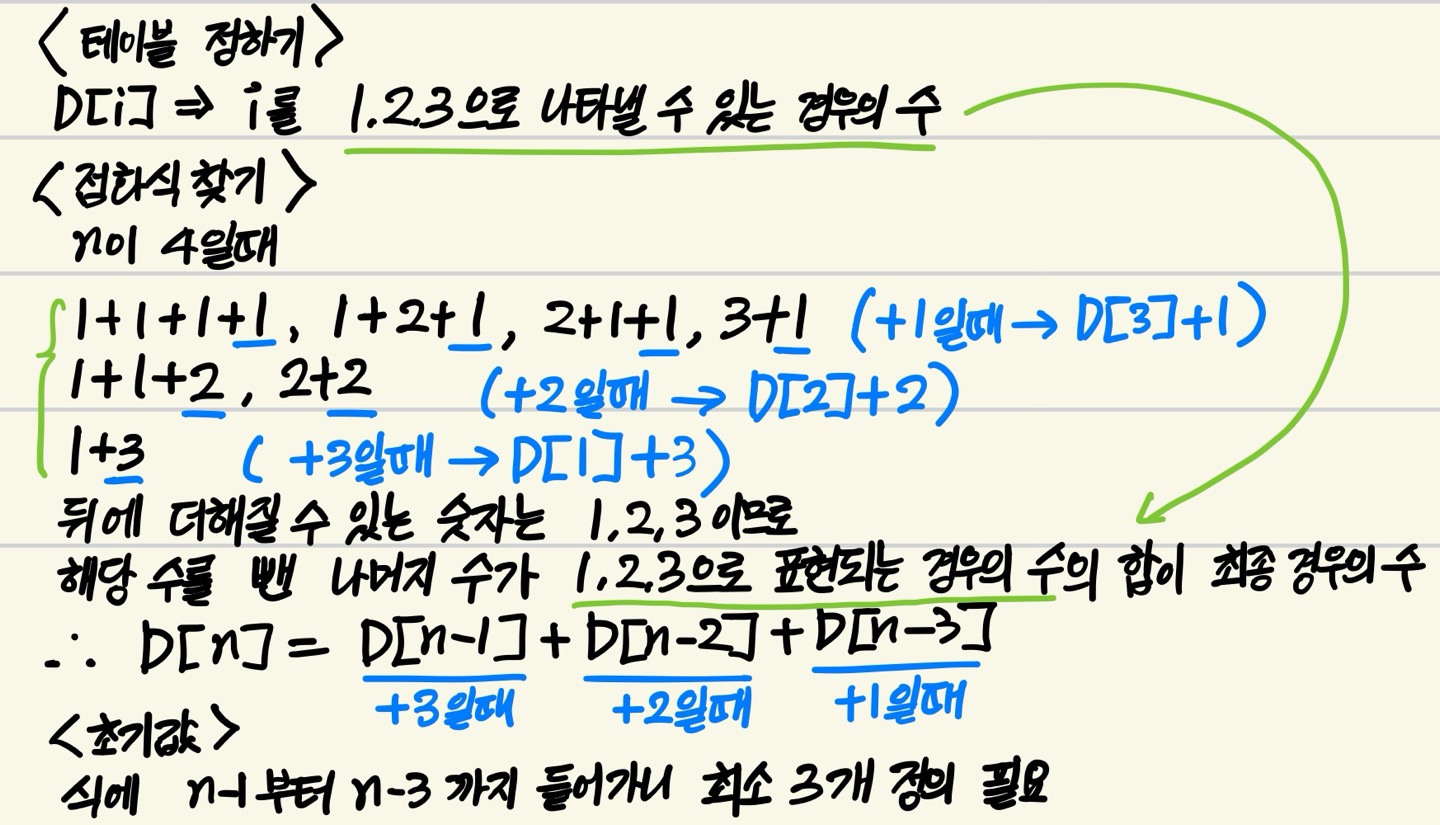 <테이블 정하기>
D[i] ⇒ i를 1.2.3으로 나타낼 수 있는 경우의 수
<점화식 찾기>
n이 4일때
1+1+1+1, 1+2+1, 2+1+1, 3+1 (+1일때 → D[3]+1)
1+1+2, 2+2 (+2일때 → D[2]+2)
1+3 (+3일때 → D[1]+3)
뒤에 더해질 수 있는 숫자는 1,2,3이므로
해당 수를 뺀 나머지 수가 1,2.3으로 표현되는 경우의 수의 합이 최종 경우의 수
∴ D[n] = D[n-1] + D[n-2] + D[n-3]
+3일때 +2일때 +1일때
<초기값>
식에 n-1부터 n-3까지 들어가니 최소 3개 정의 필요